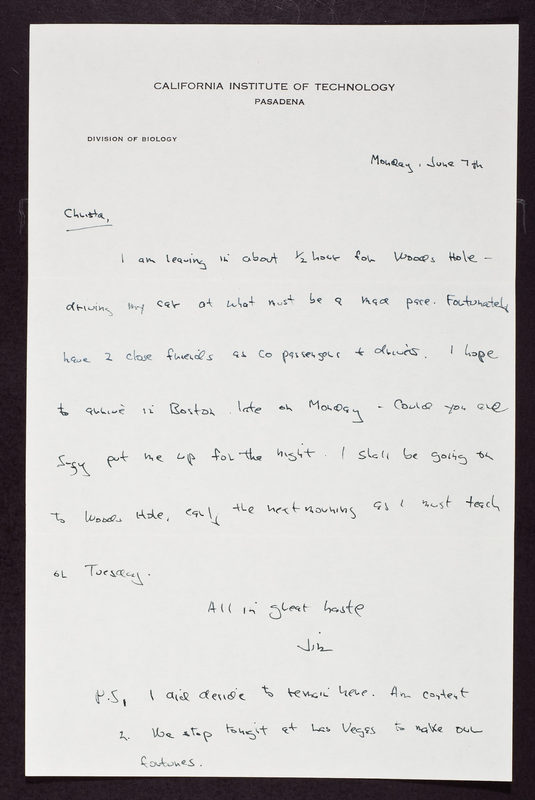 CALIFORNIA INSTITUTE OF TECHNOLOGY
PASADENA
DIVISION OF BIOLOGY
Monday, June 7th
Christa,
I am leaving in about 1/2 hour for Woods Hole –
driving my car at what must be a mad pace. Fortunately
have 2 close friends as co passengers + drivers. I hope
to arrive in Boston late on Monday – Could you and
put me up for the night. I shall be going on
to Woods Hole, early the next morning as I must teach
on Tuesday.
All in great haste
Jim
P.S, I did decide to remain here. Am content
2. We stop tonight at Las Vegas to make our
fortunes.